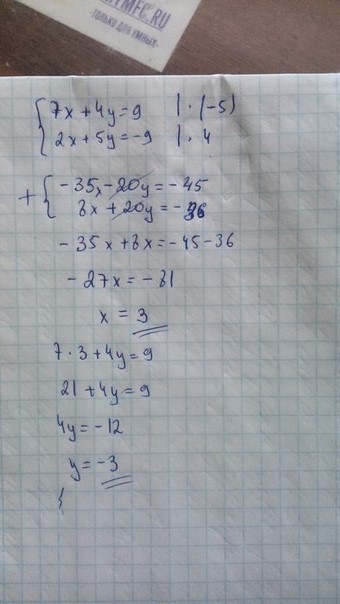 YMFC.RU
-ТОЛЬКО ДЛЯ УМНЫХ-
{ 7x + 4y = 9 | · (-5)
2x + 5y = -9 | · 4
+ { -35x - 20y = -45
8x + 20y = -36
-35x + 8x = -45 - 36
-27x = -81
x = 3
7 · 3 + 4y = 9
21 + 4y = 9
4y = -12
y = -3
{